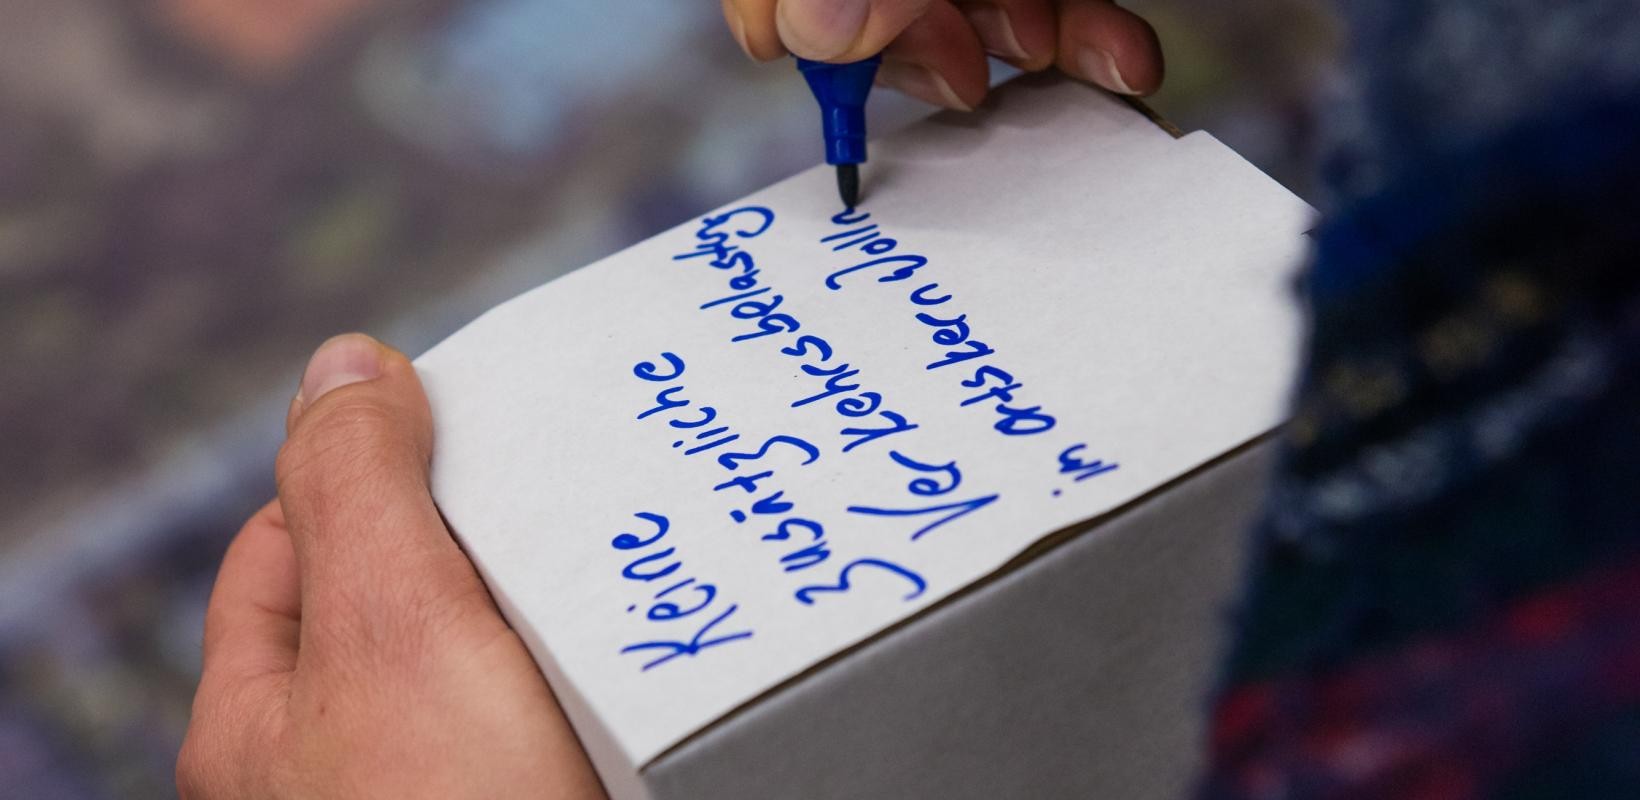 Keine
Zusätzliche
Verkehrsbelastung
in artsbern Walln